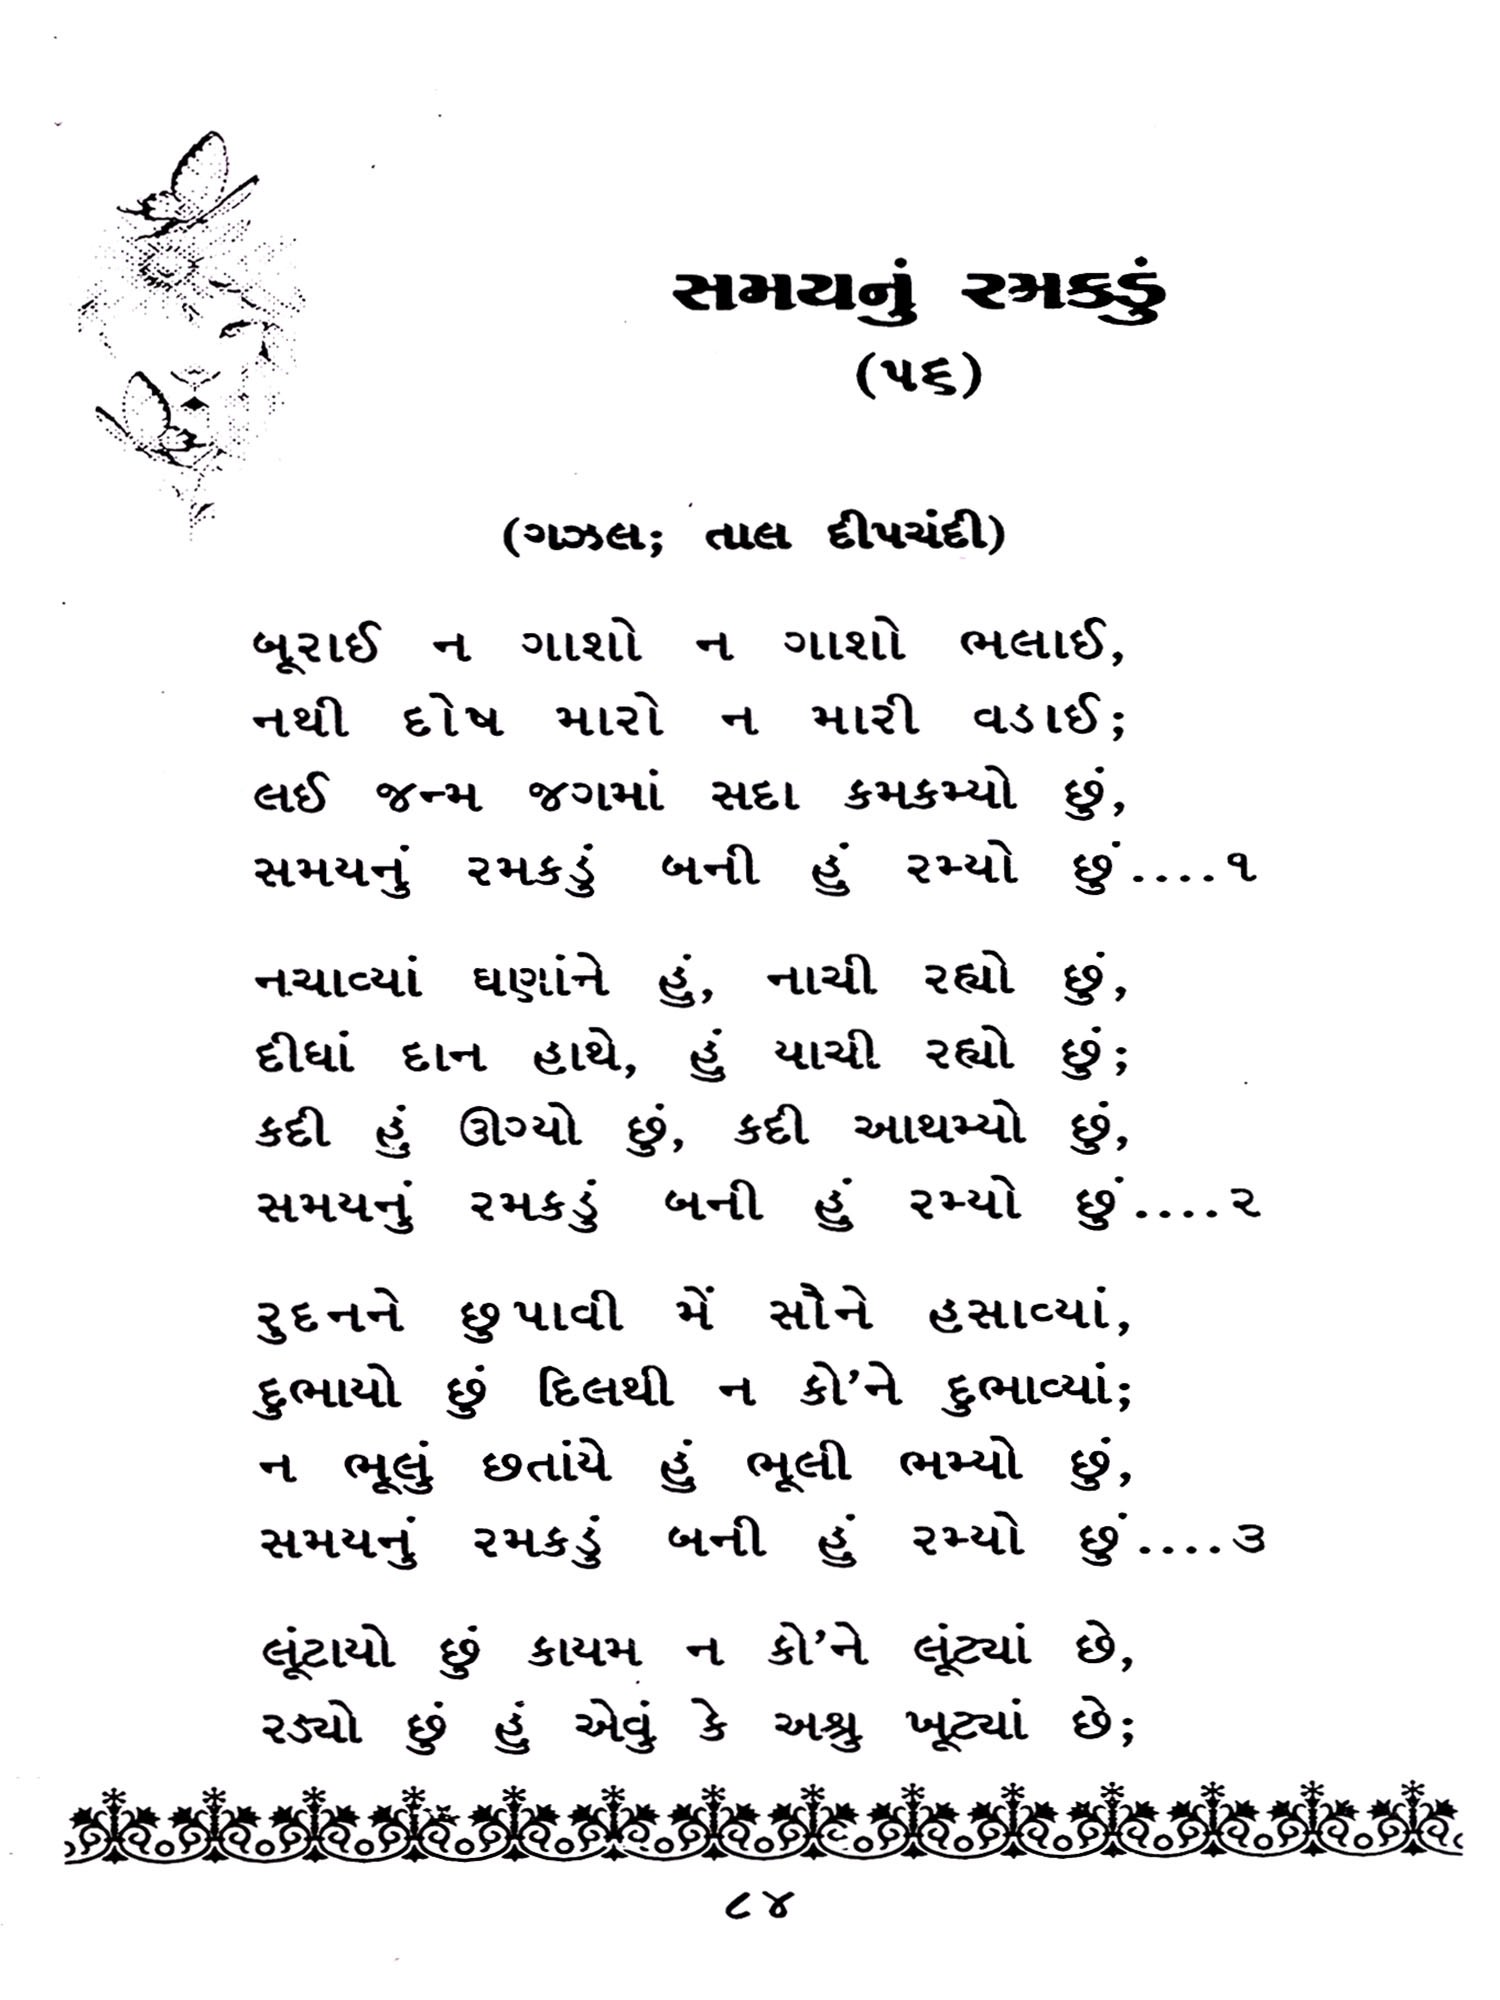 સમયનું રમકડું
(૫૬)
(ગઝલ; તાલ દીપચંદી)
બૂરાઈ ન ગાશો ન ગાશો ભલાઈ,
નથી દોષ મારો ન મારી વડાઈ;
લઈ જન્મ જગમાં સદા કમકમ્યો છું,
સમયનું રમકડું બની હું રમ્યો છું....૧
નચાવ્યાં ઘણાંને હું, નાચી રહ્યો છું,
દીધાં દાન હાથે, હું યાચી રહ્યો છું;
કદી હું ઊગ્યો છું, કદી આથમ્યો છું,
સમયનું રમકડું બની હું રમ્યો છું....૨
રુદનને છુપાવી મેં સૌને હસાવ્યાં,
દુભાયો છું દિલથી ન કો’ને દુભાવ્યાં;
ન ભૂલું છતાંયે હું ભૂલી ભમ્યો છું,
સમયનું રમકડું બની હું રમ્યો છું....૩
લૂંટાયો છું કાયમ ન કો’ને લૂંટ્યાં છે,
રડ્યો છું હું એવું કે અશ્રુ ખૂટ્યાં છે;
૮૪